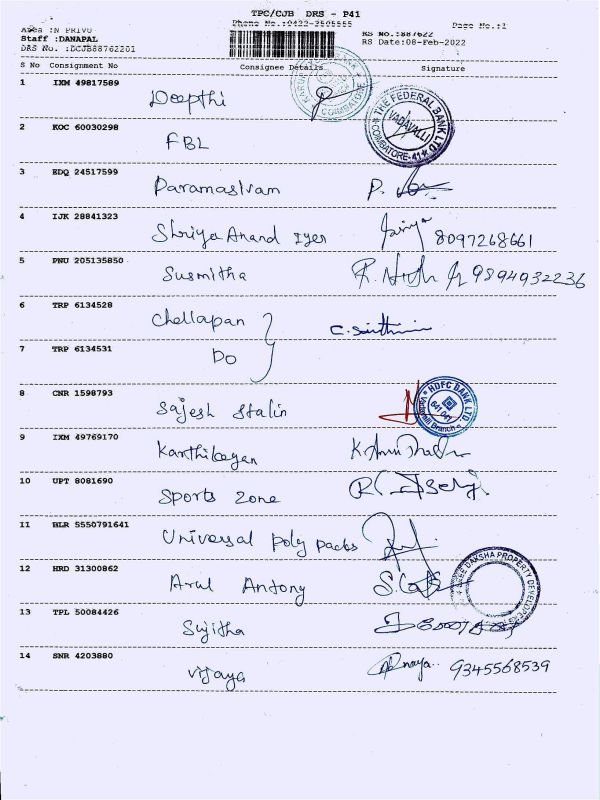 TPC/CJB DRS - P41
Phone No.:0422-2505555
Page No.:1
Area :N PRIYU
Staff :DANAPAL
DRS No. :DCJB88762201
RS No.:887622
RS Date:08-Feb-2022
S No Consignment No Consignee Details Signature
1 IXM 49817589 Deepthi
COIMBATORE
2 KOC 60030298 FBL
THE FEDERAL BANK LTD. VADAVALLI COIMBATORE-41
3 EDQ 24517599 Paramasivam
4 IJK 28841323 Shriya Anand Iyer 8097268661
5 PNU 205135850 Susmitha 9894932236
6 TRP 6134528 Chellapan
7 TRP 6134531 Do
8 CNR 1598793 Sajesh Stalin
HDFC BANK LTD. 641 041 Vadavalli Branch
9 IXM 49769170 Karthikeyan
10 UPT 8081690 Sports Zone
11 BLR 5550791641 Universal Poly packs
12 HRD 31300862 Arul Antony
SREE DAKSHA PROPERTY DEVELOPERS
13 TPL 50084426 Sujitha
14 SNR 4203880 Vijaya 9345568539